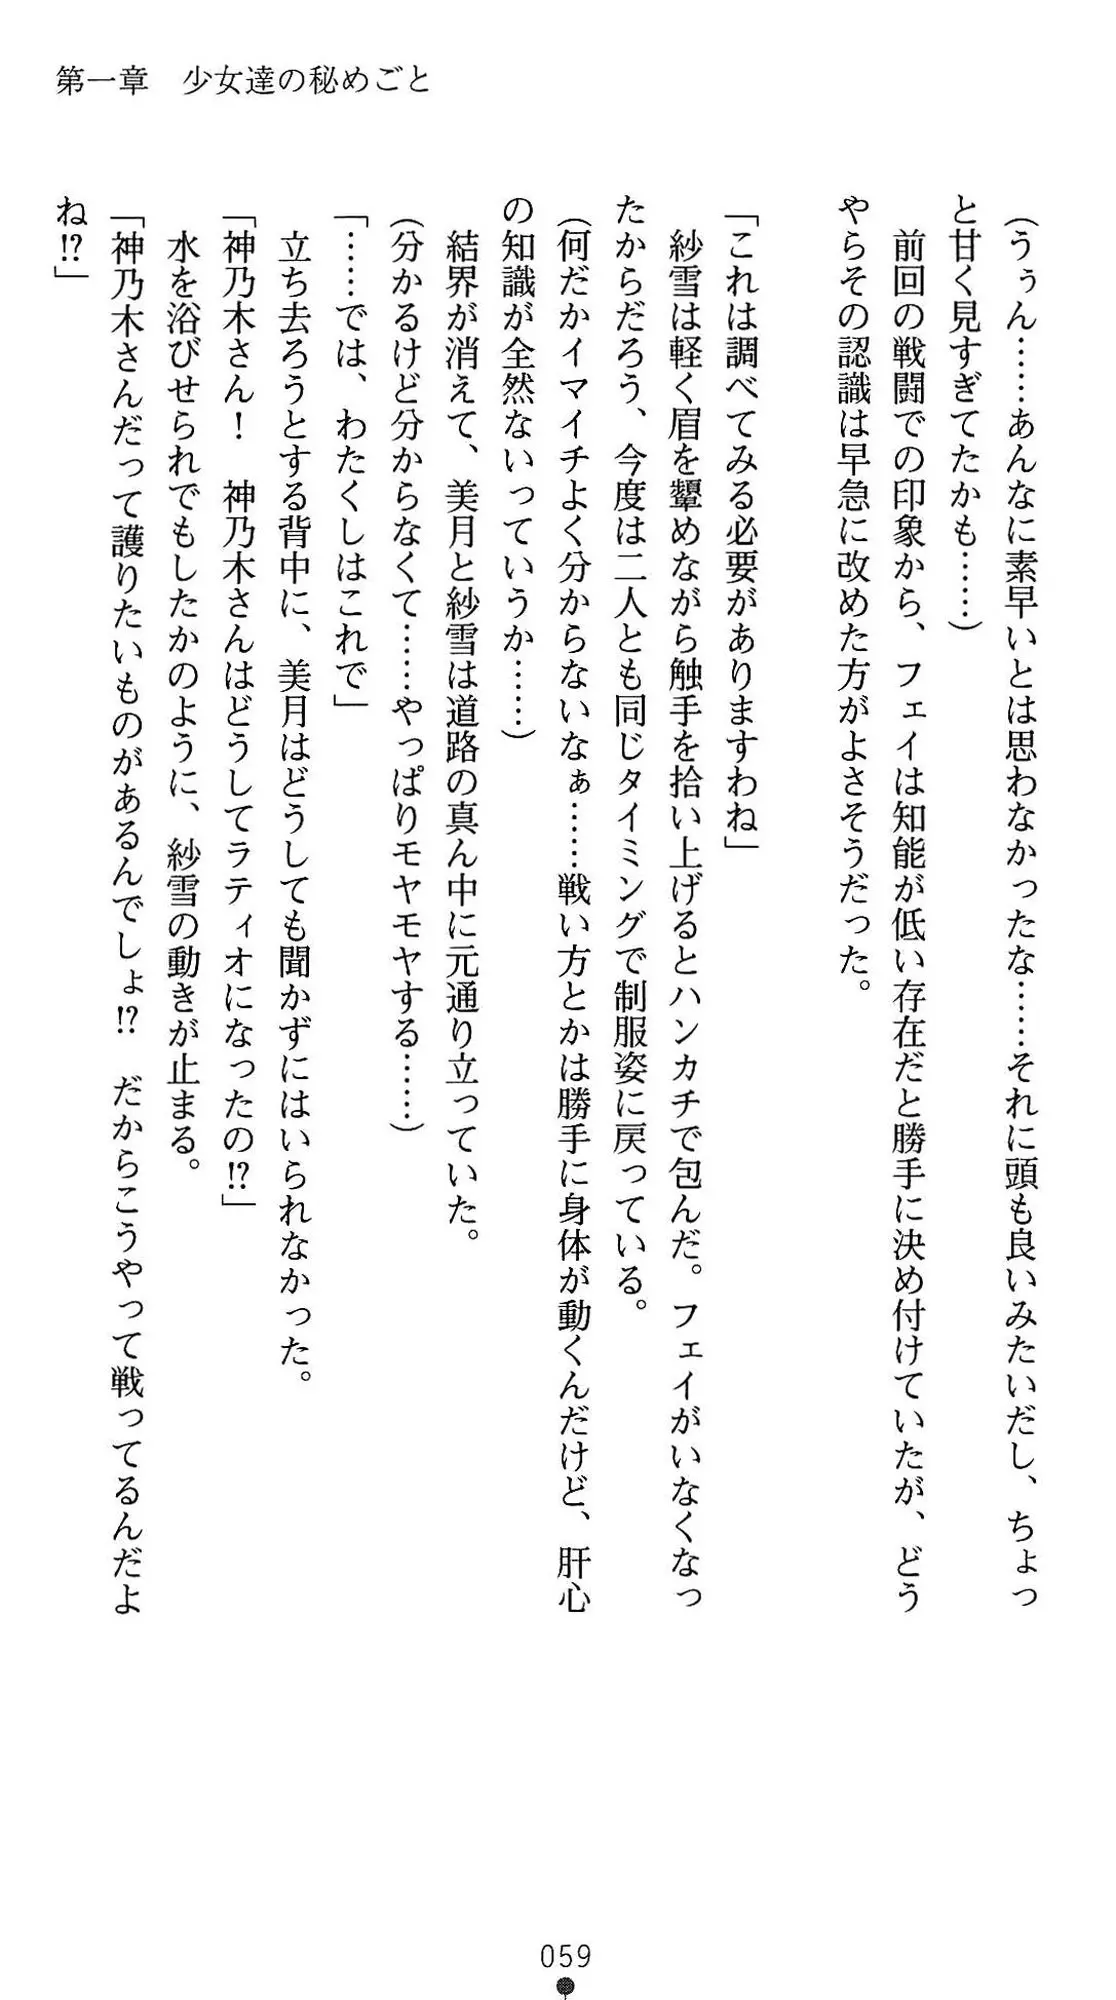 第一章　少女達の秘めごと
（うぅん……あんなに素早いとは思わなかったな……それに頭も良いみたいだし、ちょっ
と甘く見すぎてたかも……）
　前回の戦闘での印象から、フェイは知能が低い存在だと勝手に決め付けていたが、どう
やらその認識は早急に改めた方がよさそうだった。
「これは調べてみる必要がありますわね」
　紗雪は軽く眉を顰めながら触手を拾い上げるとハンカチで包んだ。フェイがいなくなっ
たからだろう、今度は二人とも同じタイミングで制服姿に戻っている。
（何だかイマイチよく分からないなぁ……戦い方とかは勝手に身体が動くんだけど、肝心
の知識が全然ないっていうか……）
　結界が消えて、美月と紗雪は道路の真ん中に元通り立っていた。
（分かるけど分からなくて……やっぱりモヤモヤする……）
「……では、わたくしはこれで」
　立ち去ろうとする背中に、美月はどうしても聞かずにはいられなかった。
「神乃木さん！　神乃木さんはどうしてラティオになったの!?」
　水を浴びせられでもしたかのように、紗雪の動きが止まる。
「神乃木さんだって護りたいものがあるんでしょ!?　だからこうやって戦ってるんだよ
ね!?」
059